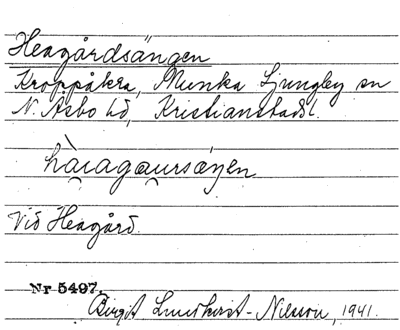 Heagårdsängen
Kroppåkra, Munka Ljungby sn
N. Åsbo hd, Kristianstads l.
Vid Heagård.
Nr 5497.
Birgit Lundkvist-Nilsson, 1941.